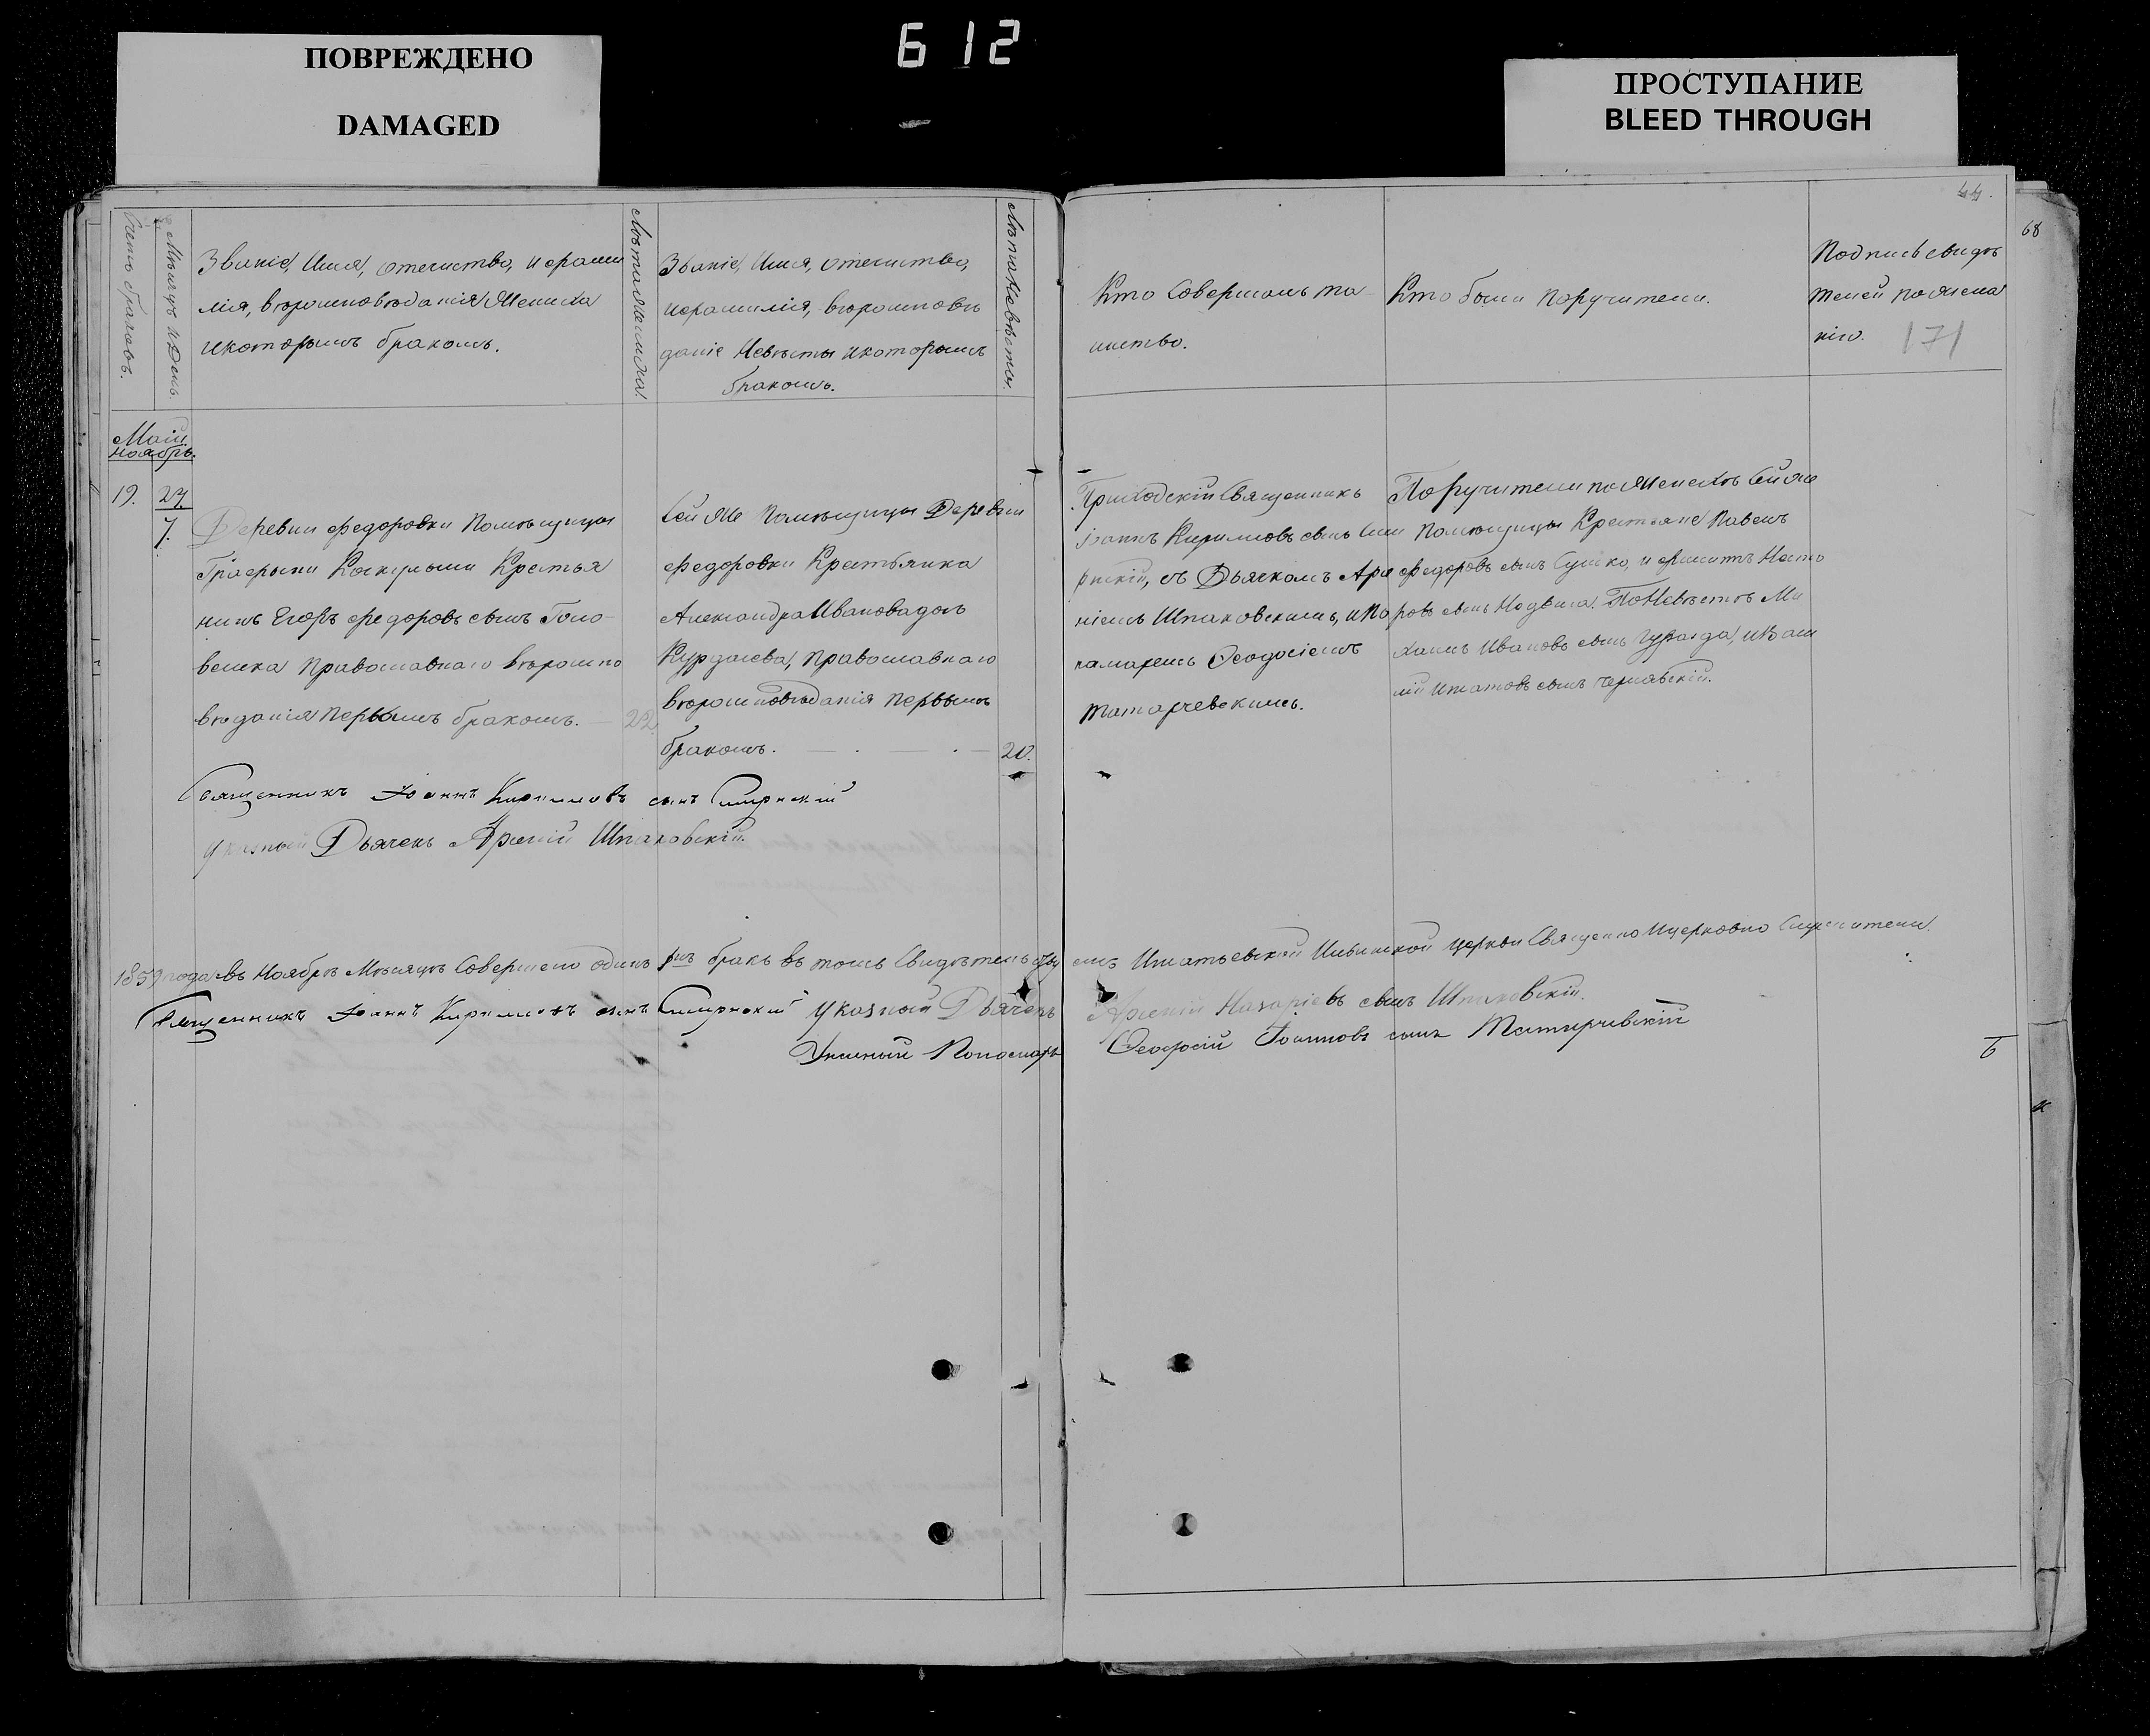 ПОВРЕЖДЕНО
DAMAGED
612
ПРОСТУПАНИЕ
BLEED THROUGH
44.
68
171
Счетъ браковъ.
Мѣсяцъ и День.
Званіе, Имя, отечиство, и фами
лія, вѣроисповѣданія Жениха
икоторымъ бракомъ.
Лѣта Жениха.
Званіе, Имя, отечиство,
ифамилія, вѣроисповѣ
даніе Невѣсты икоторымъ
бракомъ.
Лѣта Невѣсты.
Кто Совершалъ та
инство.
Кто были поручители.
Подпись свидѣ
телей по жела
нію.
ноябрь.
19.
27
7.
Деревни Федоровки Помѣщицы
Графыни Крестья
нинъ Егоръ Федоровъ сынъ Голо
Православнаго вѣроиспо
вѣданія Первымъ бракомъ. 22.
Сей же помѣщицы Деревни
Федоровки Крестьянка
Александра Иванова доч
Православнаго
вѣроисповѣданія первымъ
бракомъ. 20.
Приходскій Священникъ
Іоаннъ Кириловъ сынъ Сми
рнскій, съ Дьячкомъ Арсе
ніемъ Шпаковскимъ, ипо
намаремъ Ѳеодосіемъ
Татарчевскимъ.
Поручители по Женихѣ Сей же
Помѣщицы Крестьяне Павелъ
Федоровъ сынъ Сушко, и Филипъ Несто
ровъ сынъ По Невѣстѣ Ми
хаилъ Ивановъ сынъ
Игнатовъ сынъ Чернявскій.
Священникъ Іоаннъ Кириловъ сынъ Смирнскій
указный Дьячекъ Арсеній Шпаковскій.
1859 года въ Ноябрѣ Мѣсяцѣ Совершено одинъ бракъ въ томъ Свидѣтельствуемъ Игнатьевской Ильинской церкви Священно Ицерковно Служители.
Священникъ Іоаннъ Кириловъ сынъ Смирнскій указный Дьячекъ Арсеній Назаріевъ сынъ Шпаковскій.
Пономарь Ѳеодосій Іоанновъ сынъ Татарчевскій